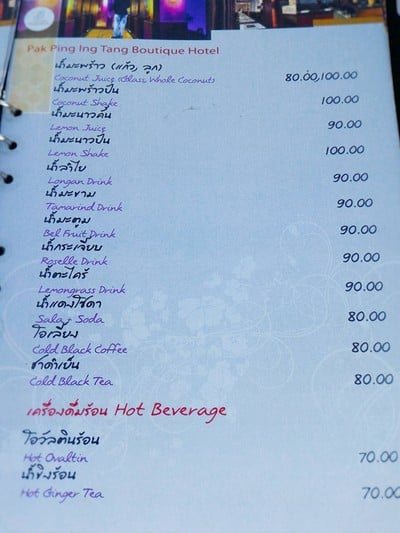 Pak Ping Ing Tang Boutique Hotel
น้ำมะพร้าว (แก้ว, ลูก)
Coconut Juice (Glass, Whole Coconut) 80.00,100.00
น้ำมะพร้าวปั่น
Coconut Shake 100.00
น้ำมะนาวคั้น
Lemon Juice 90.00
น้ำมะนาวปั่น
Lemon Shake 100.00
น้ำลำไย
Longan Drink 90.00
น้ำมะขาม
Tamarind Drink 90.00
น้ำมะตูม
Bel Fruit Drink 90.00
น้ำกระเจี๊ยบ
Roselle Drink 90.00
น้ำตะไคร้
Lemongrass Drink 90.00
น้ำแดงโซดา
Sala + Soda 80.00
โอเลี้ยง
Cold Black Coffee 80.00
ชาดำเย็น
Cold Black Tea 80.00
เครื่องดื่มร้อน Hot Beverage
โอวัลตินร้อน
Hot Ovaltin 70.00
น้ำขิงร้อน
Hot Ginger Tea 70.00